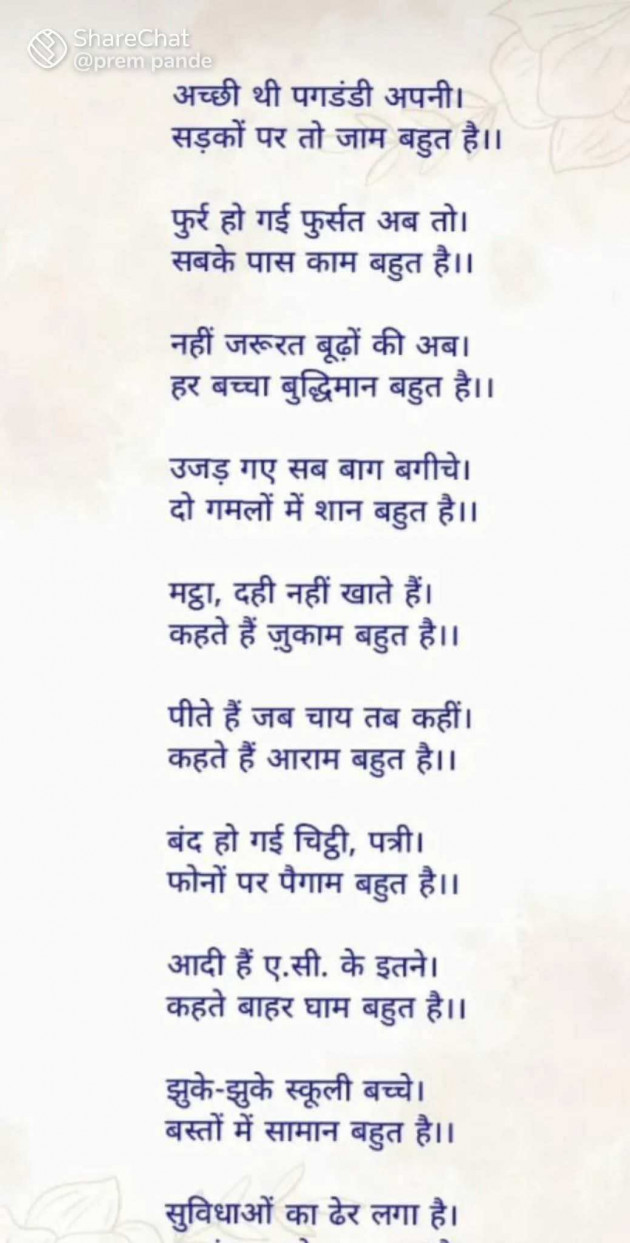 ShareChat
@prem pande
अच्छी थी पगडंडी अपनी।
सड़कों पर तो जाम बहुत है।।
फुर्र हो गई फुर्सत अब तो।
सबके पास काम बहुत है।।
नहीं जरूरत बूढ़ों की अब।
हर बच्चा बुद्धिमान बहुत है।।
उजड़ गए सब बाग बगीचे।
दो गमलों में शान बहुत है।।
मट्ठा, दही नहीं खाते हैं।
कहते हैं ज़ुकाम बहुत है।।
पीते हैं जब चाय तब कहीं।
कहते हैं आराम बहुत है।।
बंद हो गई चिट्ठी, पत्री।
फोनों पर पैगाम बहुत है।।
आदी हैं ए.सी. के इतने।
कहते बाहर घाम बहुत है।।
झुके-झुके स्कूली बच्चे।
बस्तों में सामान बहुत है।।
सुविधाओं का ढेर लगा है।